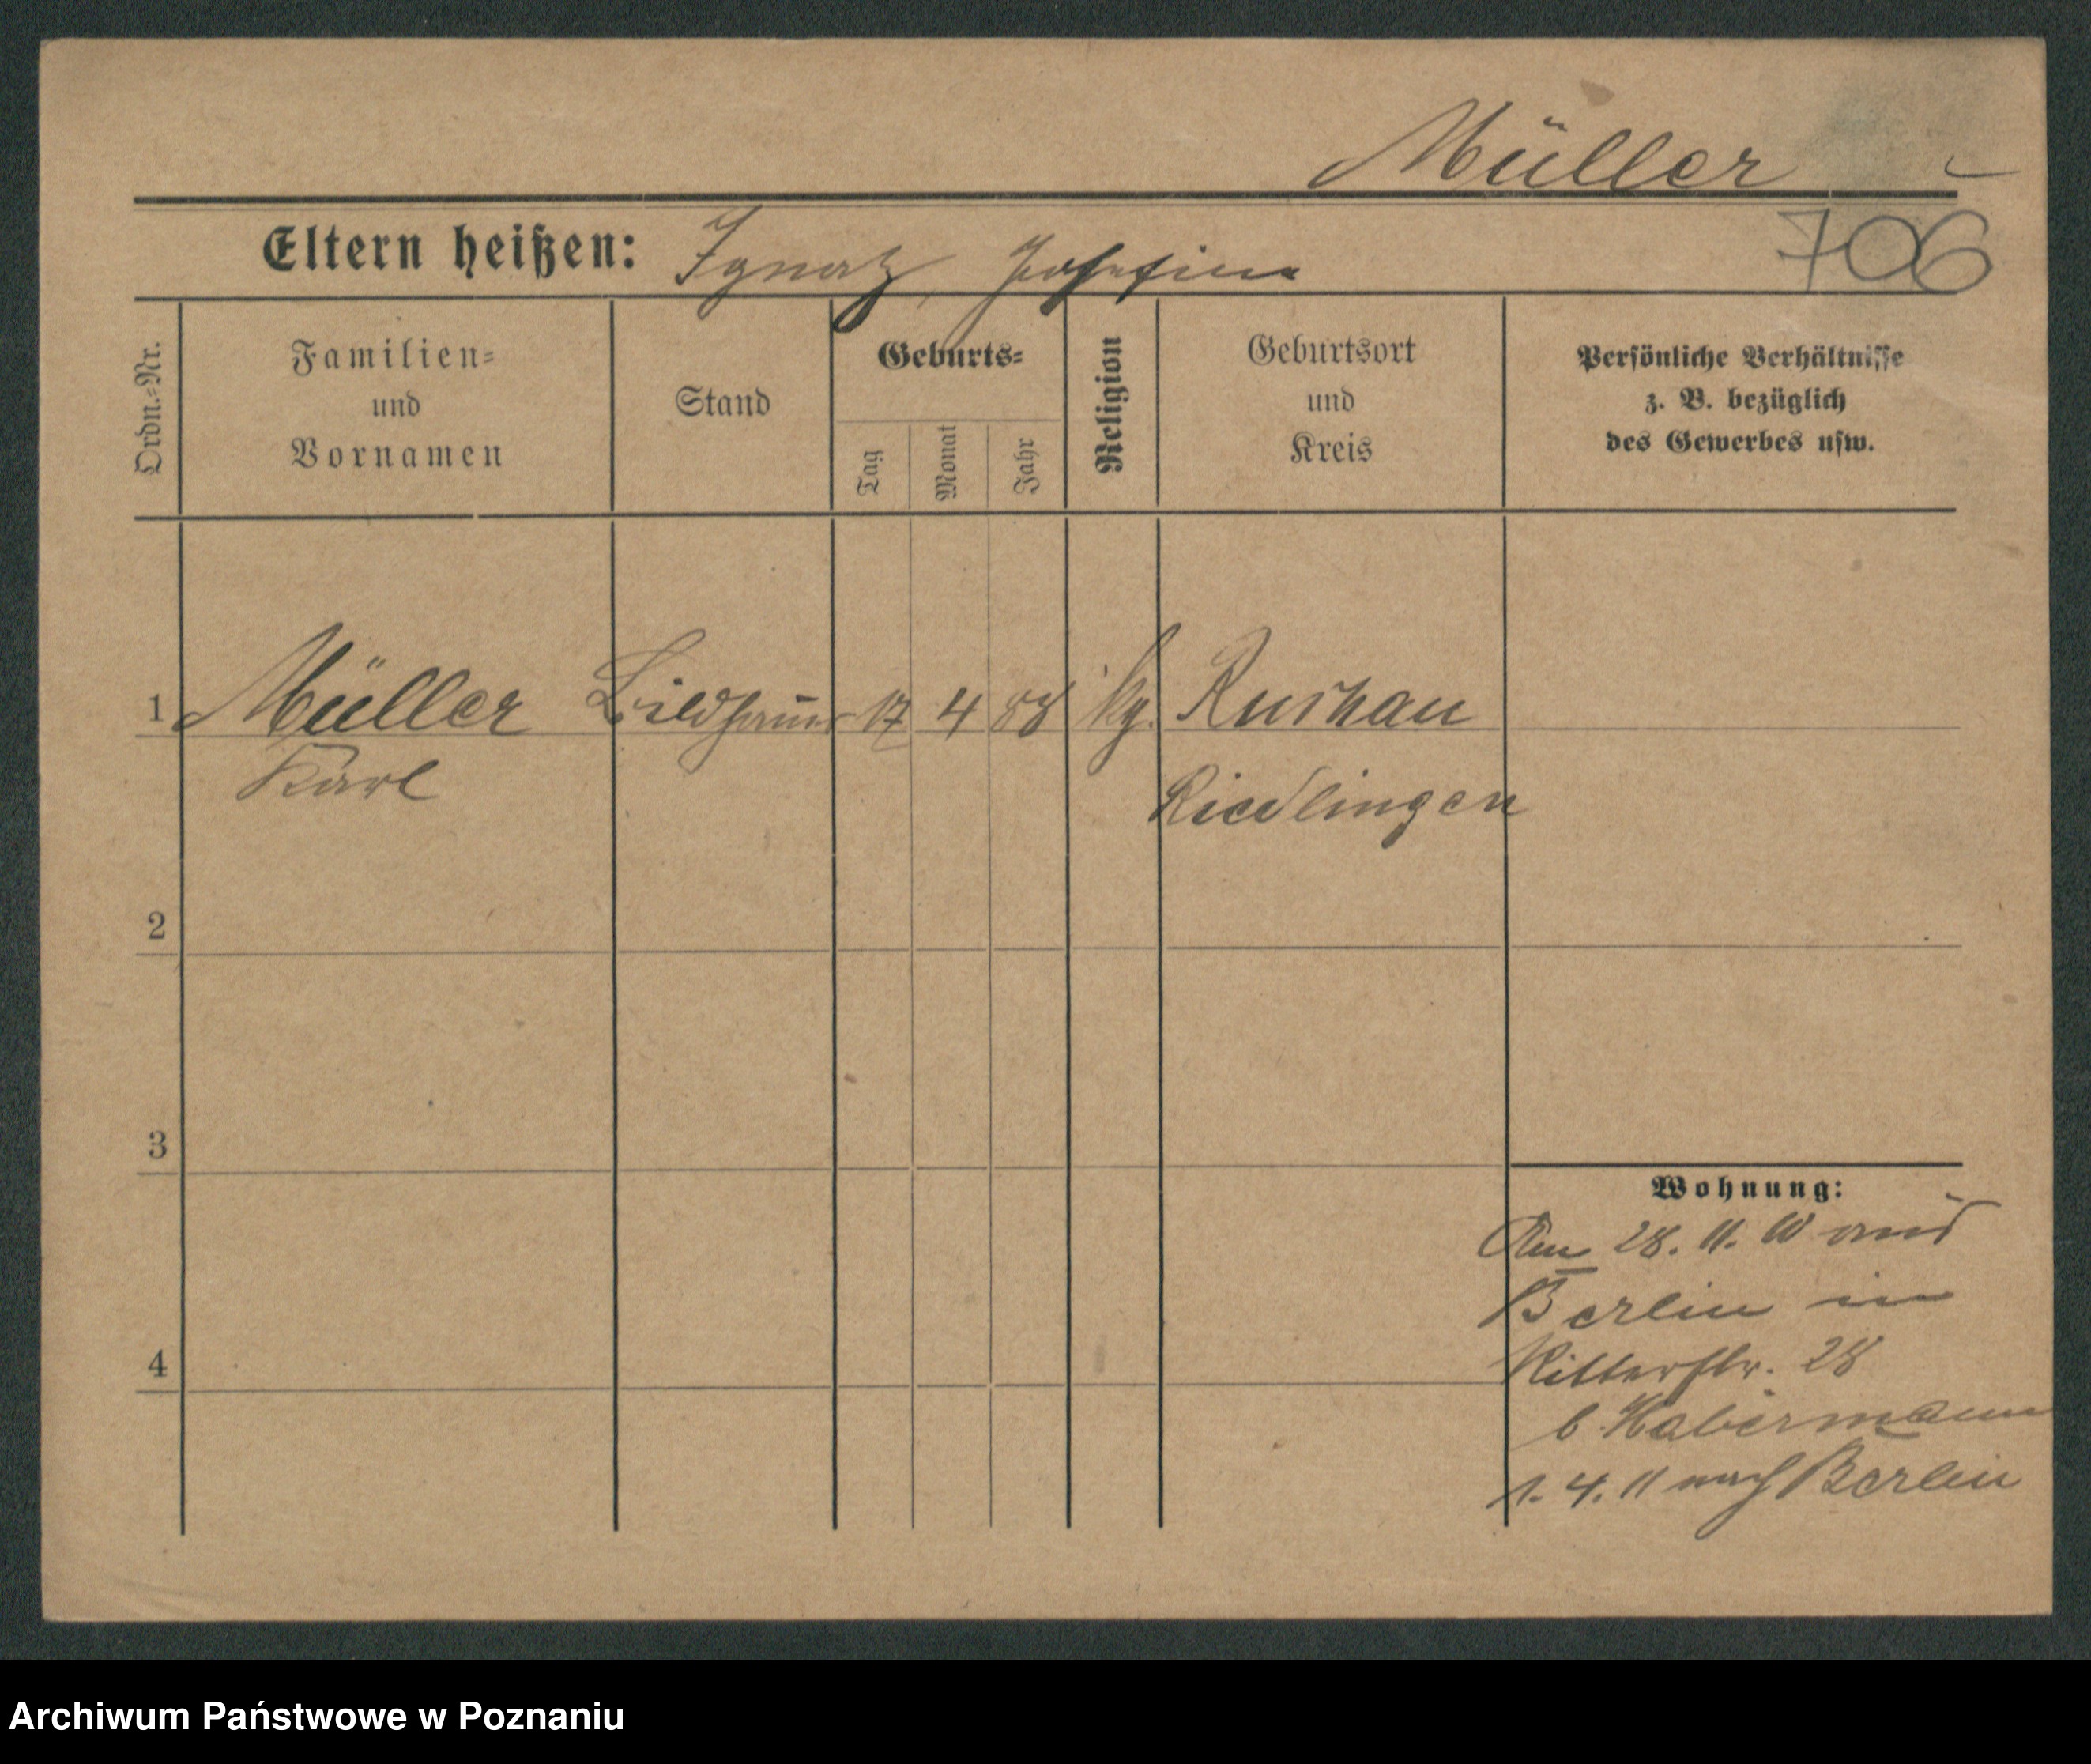 Müller
Eltern heißen: Ignatz, Josefine
706
Ordn.-Nr.
Familien-
und
Vornamen
Stand
Geburts-
Tag
Monat
Jahr
Religion
Geburtsort
und
Kreis
Persönliche Verhältnisse
z. B. bezüglich
des Gewerbes usw.
1 Müller Bildhauer 17 4 88 kg.
Karl
Riedlingen
2
3
4
Wohnung:
Am 28. 11. 10 aus
Berlin in
Ritterstr. 28
b. Habermann
1. 4. 11 nach Berlin
Archiwum Państwowe w Poznaniu